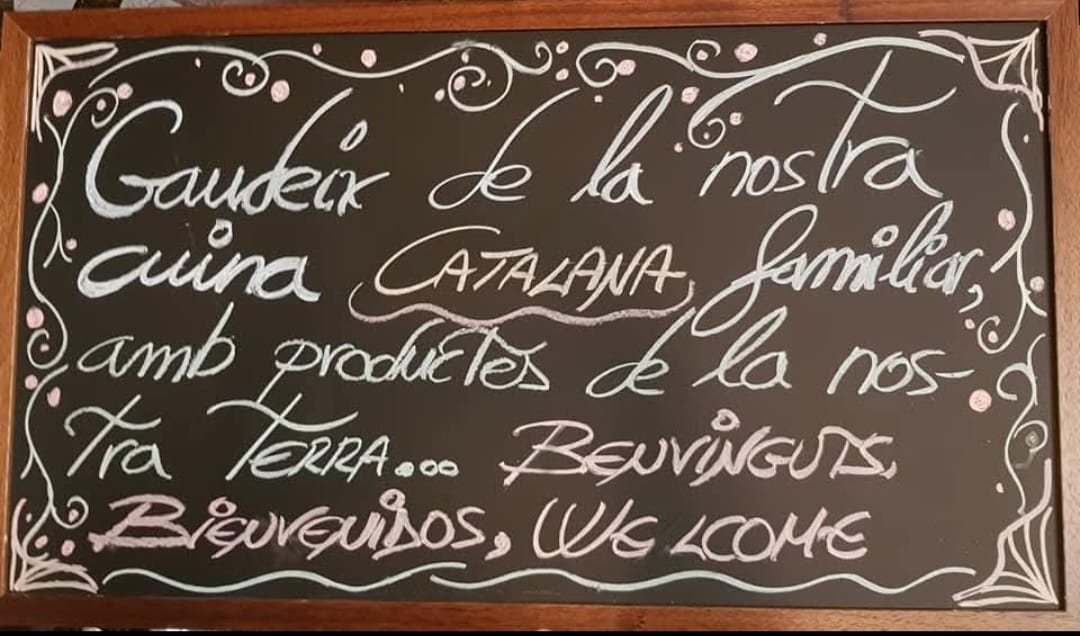 Gaudeix de la nostra
cuina CATALANA familiar,
amb productes de la nos-
tra TERRA...  BENVINGUTS,
BIENVENIDOS, WELCOME